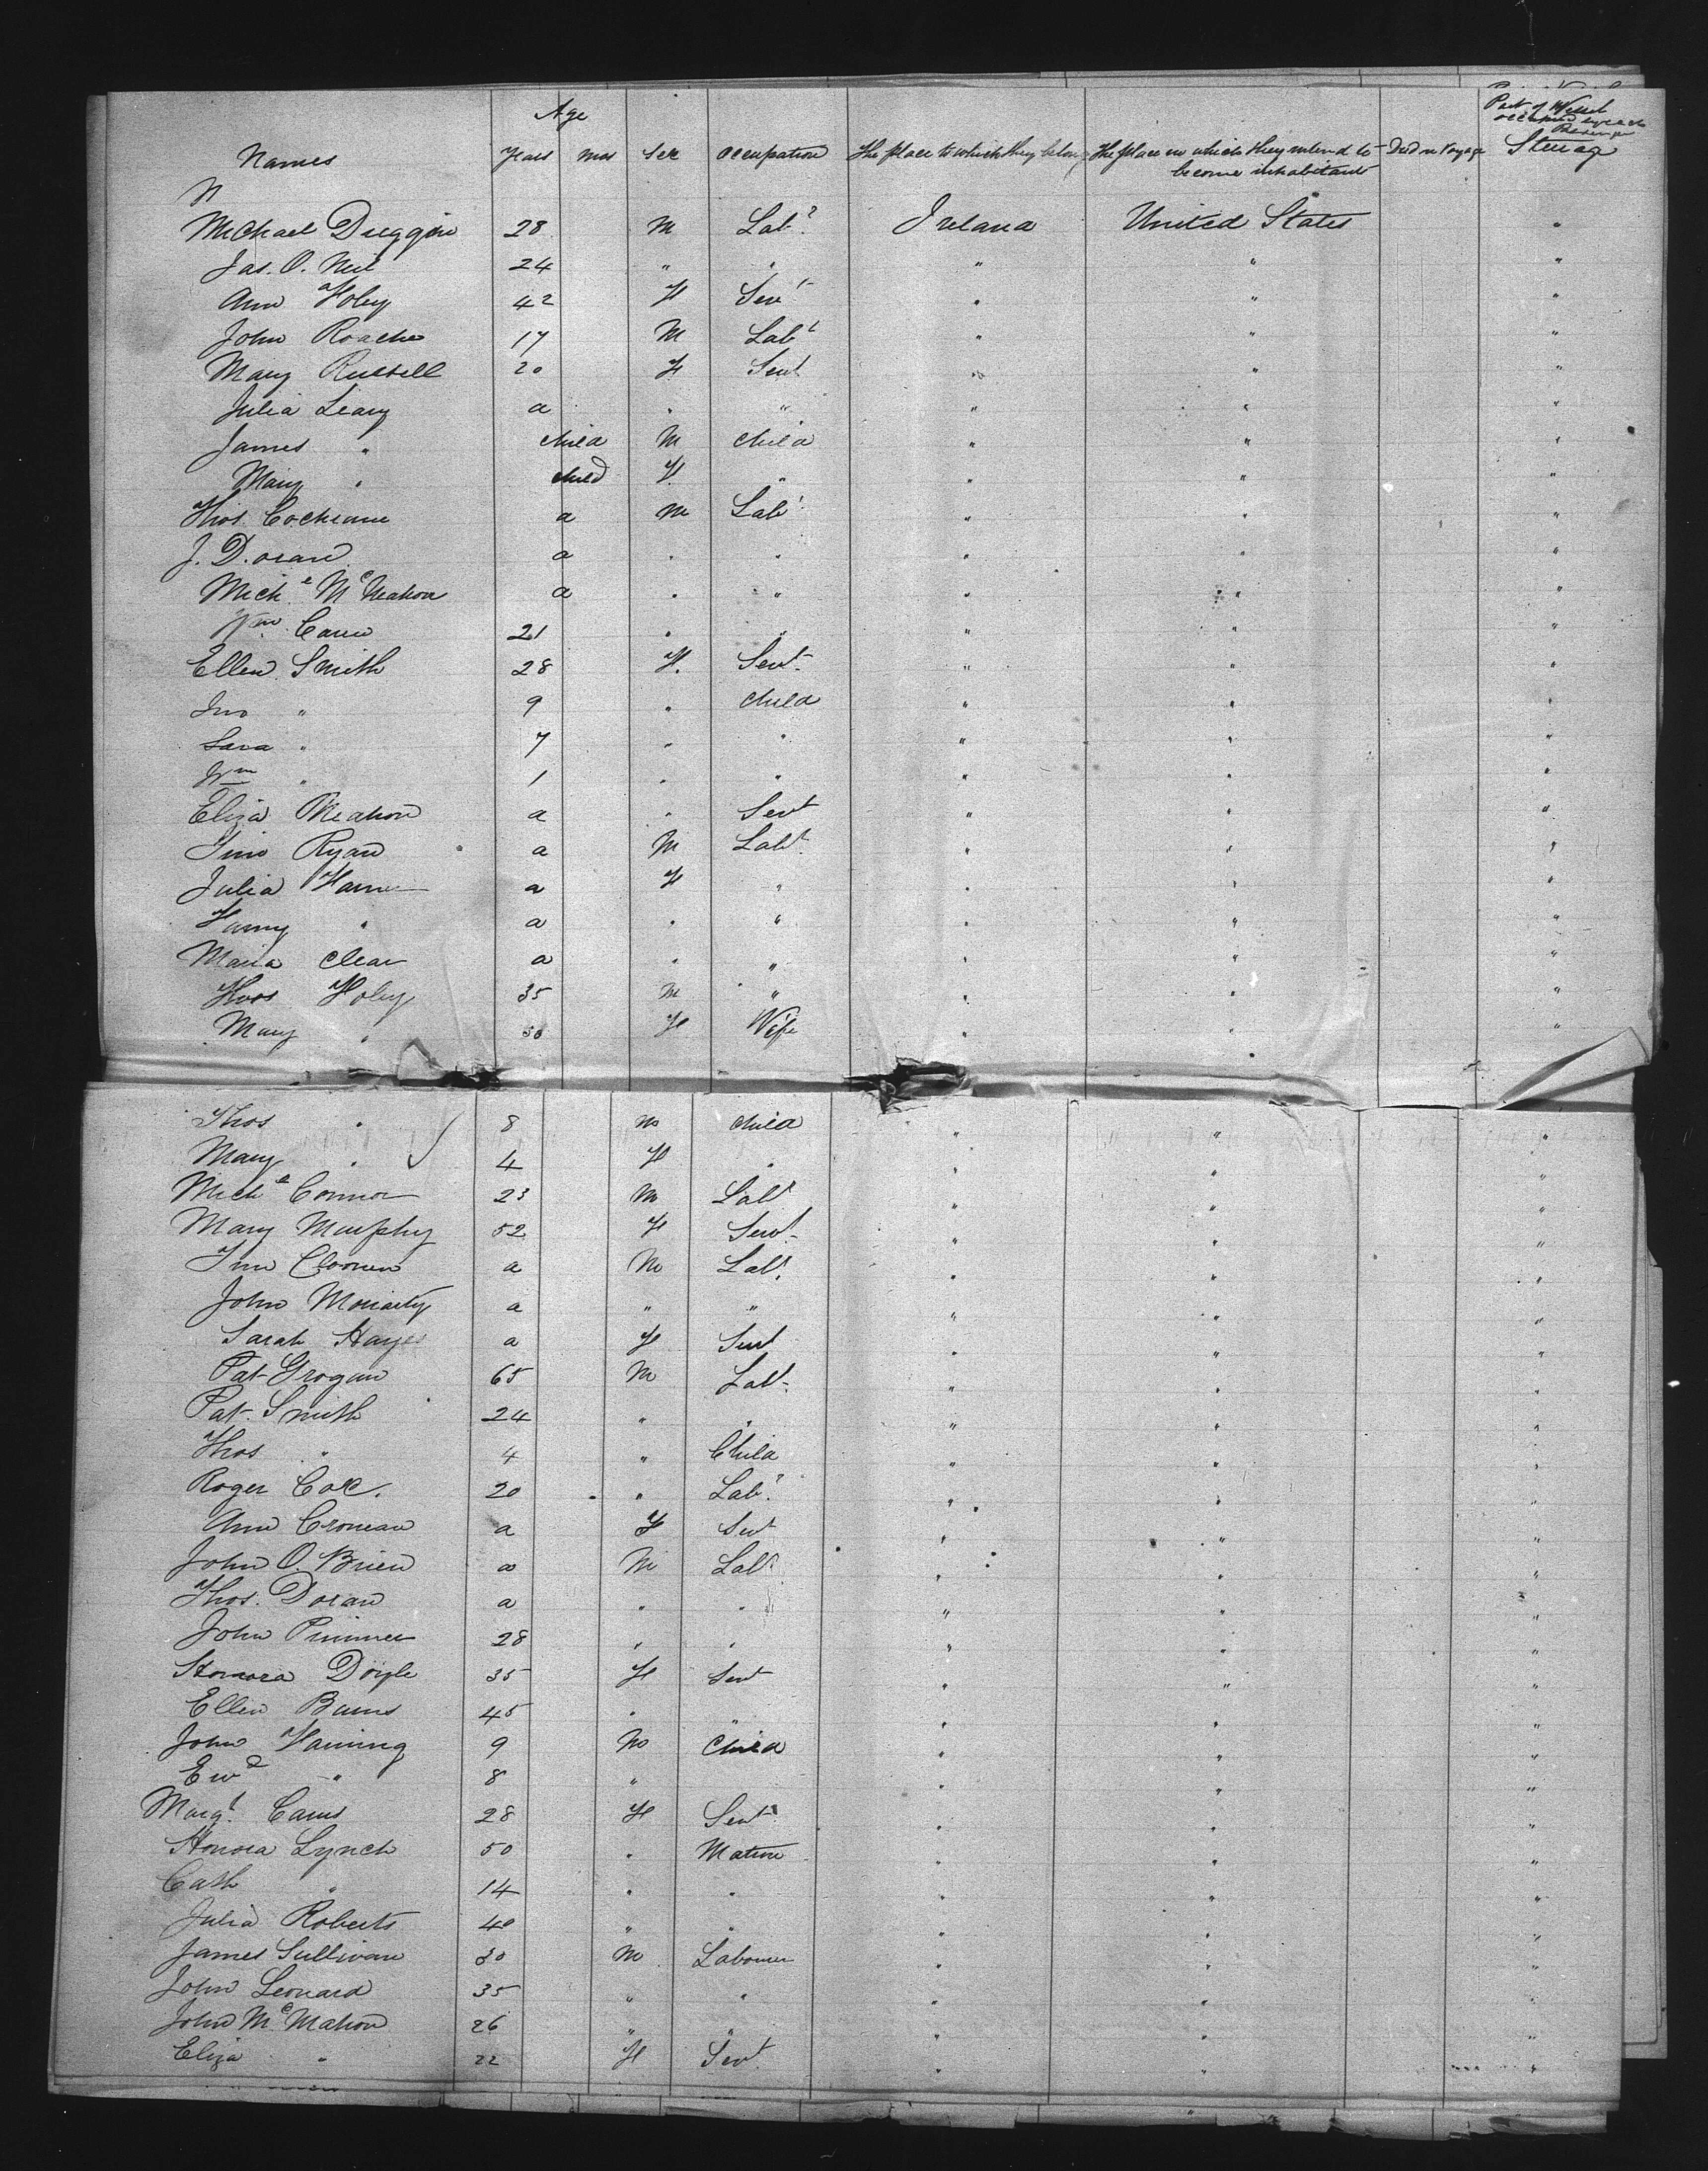 Age
Part of Vessel occupied by each Passenger
Names Years mos Sex Occupation The place to which they belong The place in which they intend to become inhabitants Died on Voyage Steerage
Michael Duggin 28 M Labr Ireland United States "
Jas. O. Neil 24 " " " " "
Ann Foley 42 F Servt " " "
John Roache 17 M Labr " " "
Mary Russell 20 F Servt " " "
Julia Leary a " " " " "
James " child M child " " "
Mary " child F. " " " "
Thos. Cochrane a M Labr " " "
J. Doran a " " " " "
Michl McMahon a " " " " "
Wm Carew 21 " " " " "
Ellen Smith 28 F. Servt " " "
Jno " 9 " child " " "
Sara " 7 " " " " "
Wm " 1 " " " " "
Eliza Meahon a " Servt " " "
Timo Ryan a M Labr " " "
Julia a F " " " "
Fanny " a " " " " "
Maria Clear a " " " " "
Thos Foley 35 M " " " "
Mary " 30 F Wife " " "
Thos " 8 M child " " "
Mary " 4 F " " " "
Michl Connor 23 M Labr " " "
Mary Murphy 52 F Servt " " "
Tim a M Labr " " "
John Moriarty a " " " " "
Sarah Hayes a F Servt " " "
Pat Grogan 65 M Labr " " "
Pat. Smith 24 " " " " "
Thos " 4 " Child " " "
Roger Cox. 20 " Labr " " "
Ann Cronean a F Servt " " "
John O. Brien a M Labr " " "
Thos. Doran a " " " " "
John 28 " " " " "
Honora Doyle 35 F Servt " " "
Ellen Burns 45 " " " " "
John Faning 9 M Child " " "
Ewd " 8 " " " "
Margt Carns 28 F Servt " " "
Honora Lynch 50 " Matron " " "
Cath " 14 " " " " "
Julia Roberts 40 " " " " "
James Sullivan 30 M Labourer " " "
John Leonard 35 " " " " "
John McMahon 26 " " " " "
Eliza " 22 F Servt " " "